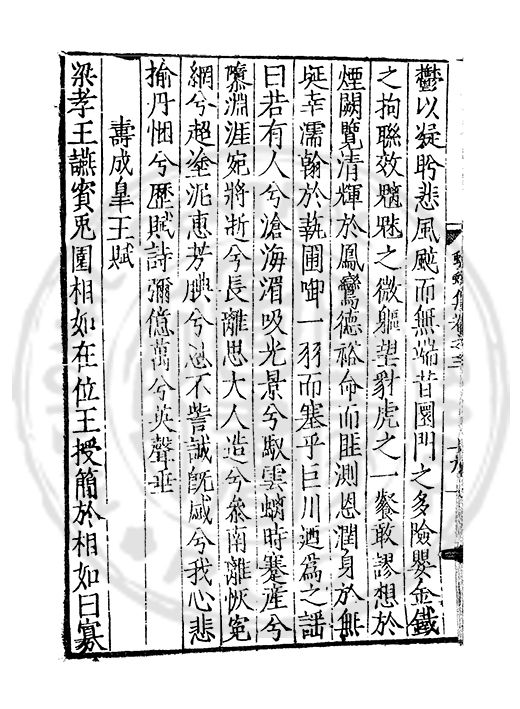 鬱以凝眝悲風颷而無端昔圜門之多險嬰金鐵
之拘聯效魑魅之微軀望豺虎之一餐敢謬想於
煙闕覽清輝於鳳鸞德裕命而匪測恩潤身於無
疑幸濡翰於執圃啣一羽而塞乎巨川廼為之謡
曰若有人兮滄海湄吸光景兮馭雲螭時蹇産兮
隳淵涯宛將逝兮長離思大人造兮叅南離恢宛
網兮超塗泥惠芳腆兮過不訾誠旣感兮我心悲
揄丹悃兮歷賦詩彌億萬兮英聲垂
壽成皇王賦
梁孝王讌賓兎園相如在位王授簡於相如曰寡
蠛蠓集卷之三